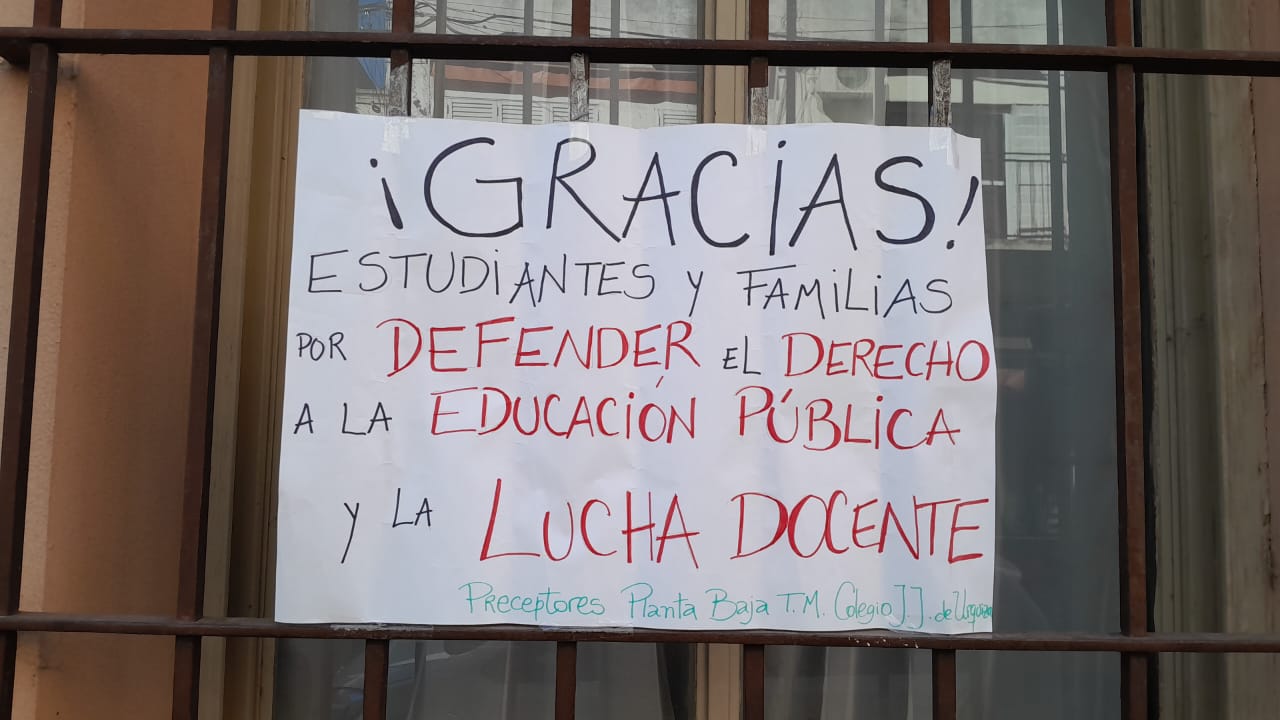 ¡GRACIAS!
ESTUDIANTES Y FAMILIAS
POR DEFENDER EL DERECHO
A LA EDUCACIÓN PÚBLICA
Y LA LUCHA DOCENTE
Preceptores Planta Baja T.M. Colegio J.J. de Urquiza